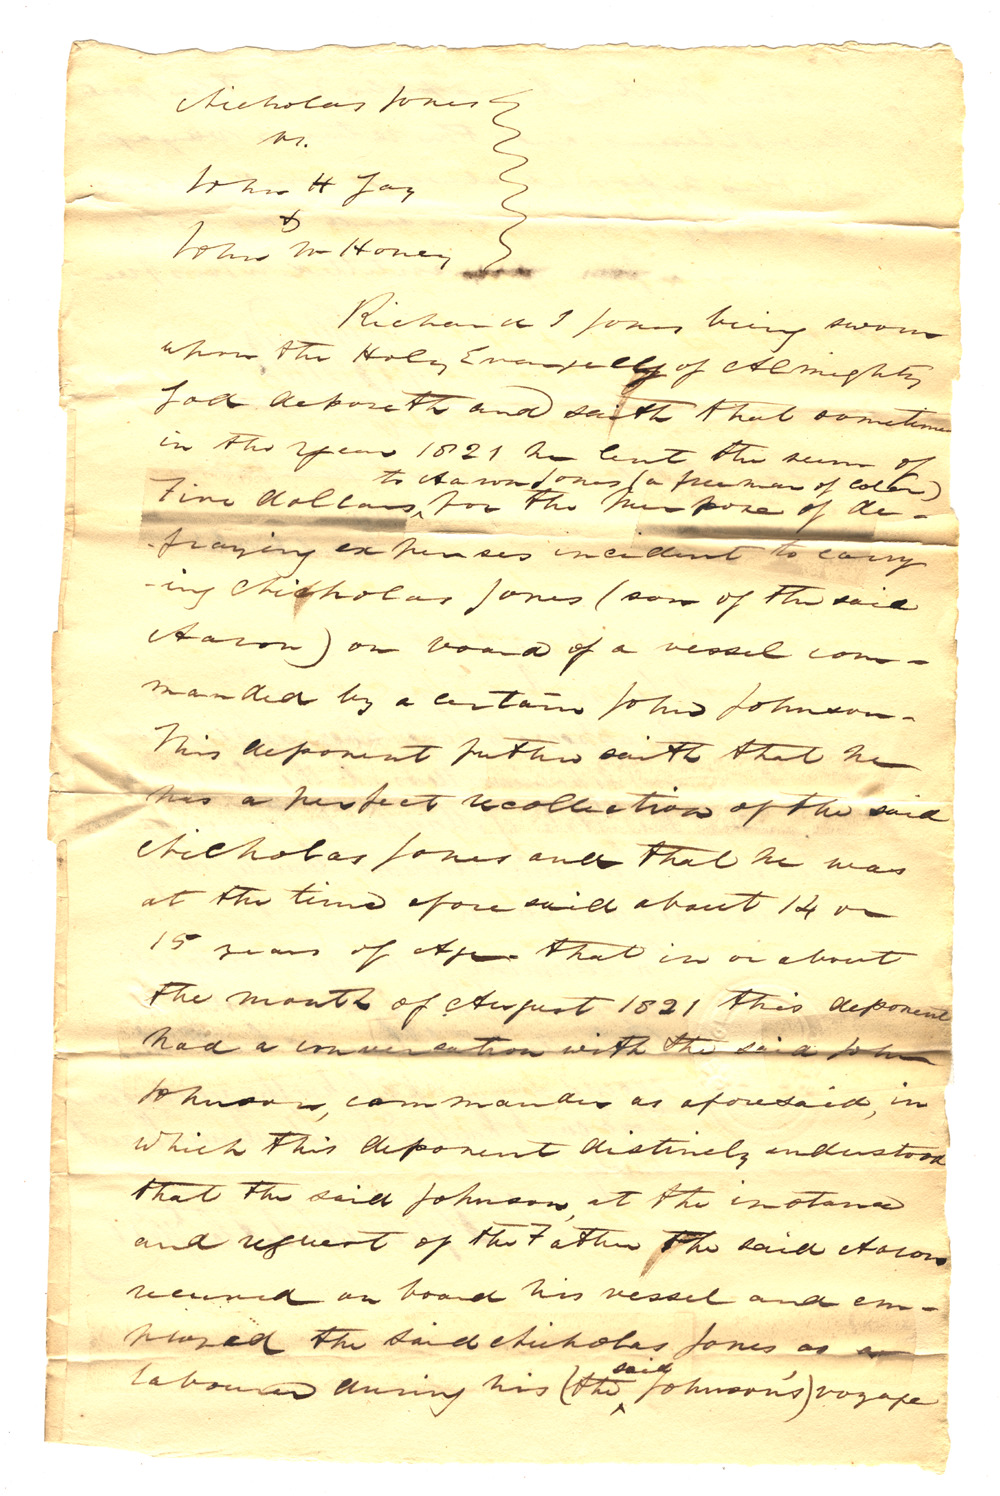 Nicholas Jones
vs.
John H Jay
&
John W Honey
Richard I Jones being sworn
upon the Holy Evangelly of Almighty
God deposeth and saith that sometime
in the year 1821 he lent the sum of
to Aaron Jones (a freeman of color)
Five dollars ^ for the purpose of de-
-fraying expenses incident to carry
-ing Nicholas Jones (son of the said
Aaron) on board of a vessel com-
manded by a certain John Johnson-
This deponent futher saith that he
has a perfect recollection of the said
Nicholas Jones and that he was
at the time afore said about 14 or
15 years of Age- that in or about
the month of August 1821 this deponent
had a conversation with the said John
Johnson, commander as aforesaid, in
which this deponent distinctly understood
that the said Johnson, at the instance
and request of the Father the said Aaron
received on board his vessel and em-
ployed the said Nicholas Jones, as a
said
labourer during his (the ^ Johnson's) voyage